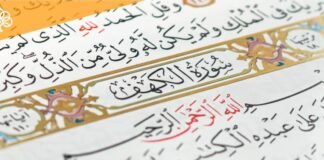 وَقُلِ الْحَمْدُ لِلَّهِ الَّذِى لَمْ
الْمُلْكِ وَلَمْ يَكُن لَّهُ وَلِىٌّ مِّنَ الذُّلِّ وَكَبِّرْ
سُورَةُ الْكَهْفِ
اللَّهِ الرَّحْمَٰنِ الرَّحِيمِ
عَلَىٰ عَبْدِهِ الْكِتَٰبَ